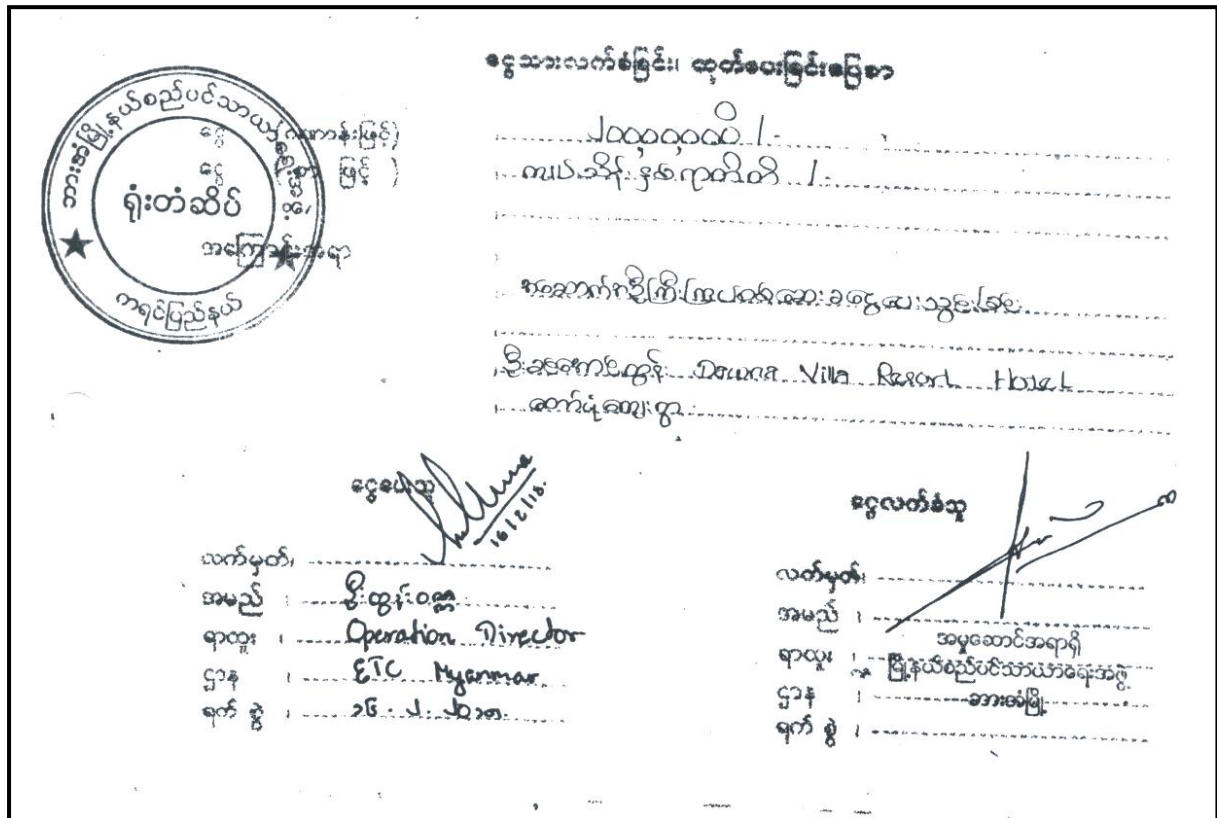 ငွေသားလက်ခံခြင်း၊ ထုတ်ပေးခြင်းပြေစာ
ဘားအံမြို့နယ်စည်ပင်သာယာရေးအဖွဲ့
ရုံးတံဆိပ်
ကရင်ပြည်နယ်
ငွေ (ဂဏန်းဖြင့်) ၂၀၀၀၀၀၀ိ /-
ငွေ (စာဖြင့်) ကျပ်သိန်း နှစ်ရာတိတိ /-
အကြောင်းအရာ
အဆောက်အဦကြီးကြပ်စစ်ဆေးခငွေပေးသွင်းခြင်း
Dawna Villa Resort Hotel
ကျေးရွာ
ငွေပေးသူ
16/2/18.
လက်မှတ်၊
အမည် ၊ ဦးထွန်းဝဏ္ဏ
ရာထူး ၊ Operation Director
ဌာန ၊ ETC Myanmar
ရက်စွဲ ၊ ၁၆.၂.၂၀၁၈
ငွေလက်ခံသူ
လက်မှတ်၊
အမည် ၊
အမှုဆောင်အရာရှိ
ရာထူး ၊ မြို့နယ်စည်ပင်သာယာရေးအဖွဲ့
ဌာန ၊ ဘားအံမြို့
ရက်စွဲ ၊